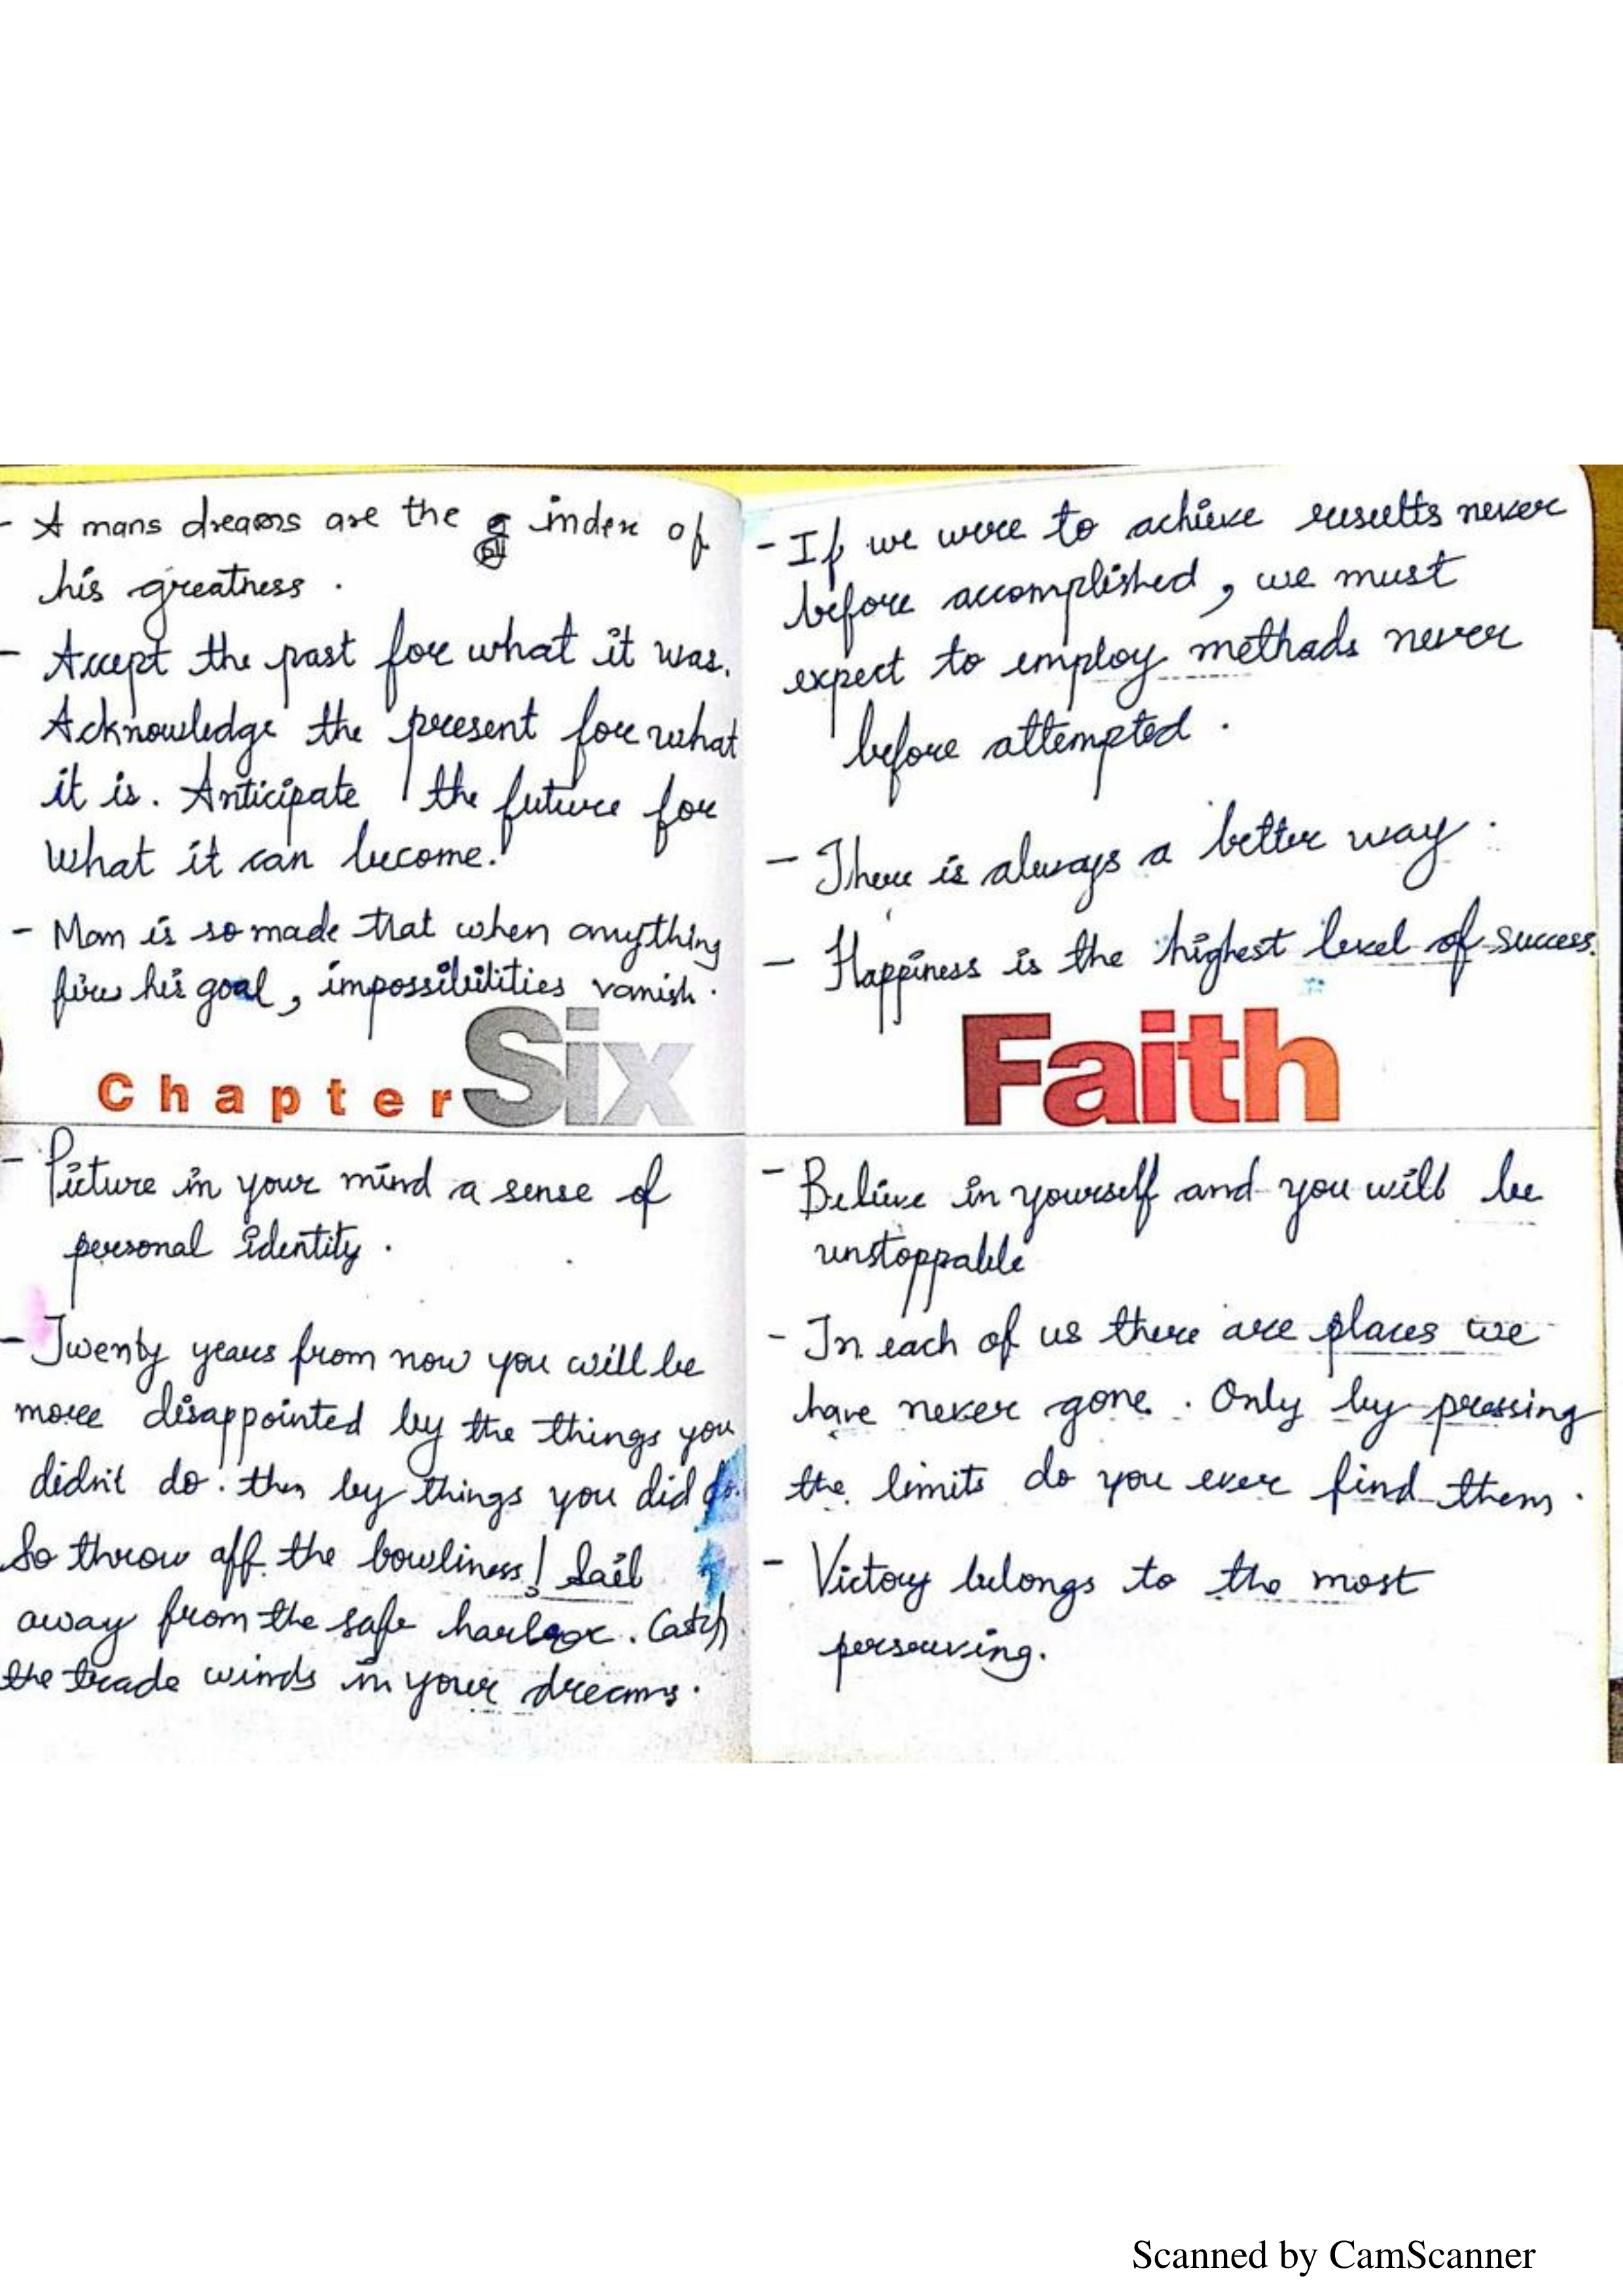 - A mans dreams are the index of
his greatness.
- Accept the past for what it was.
Acknowledge the present for what
it is. Anticipate the future for
what it can become.
- Man is so made that when anything
fire his goal, impossibilities vanish.
Chapter Six
- Picture in your mind a sense of
personal identity.
- Twenty years from now you will be
more disappointed by the things you
didn't do. then by things you did do.
So throw off the bowliness! Sail
away from the safe harbor. Catch
the trade winds in your dreams.
- If we were to achieve results never
before accomplished, we must
expect to employ methods never
before attempted.
- There is always a better way.
- Happiness is the highest level of success.
Faith
- Believe in yourself and you will be
unstoppable
- In each of us there are places we
have never gone. Only by pressing
the limits do you ever find them.
- Victory belongs to the most
perserving.
Scanned by CamScanner